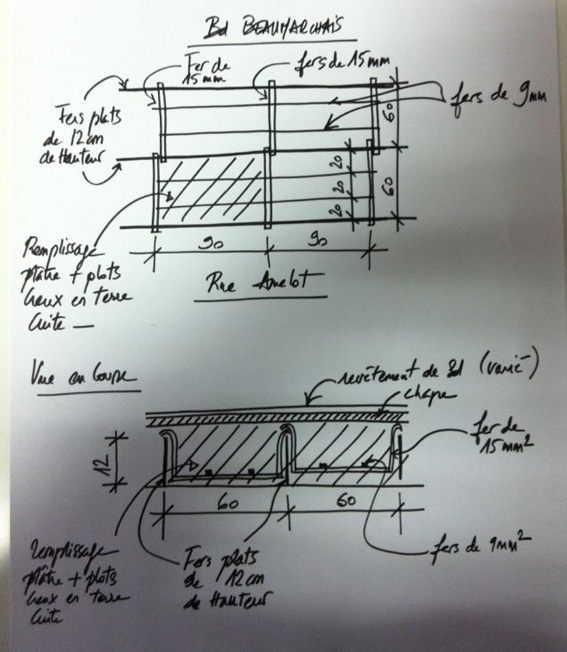 Bd BEAUMARCHAIS
Fer de
15mm
fers de 15mm
fers de 9mm
Fers plats
de 12cm
de Hauteur
60
20
20
20
60
90
90
Remplissage
plâtre + plots
creux en terre
cuite
Rue Amelot
Vue en Coupe
revêtement de Sol (varié)
chape
fer de
15mm²
12
60
60
fers de 9mm²
Remplissage
plâtre + plots
creux en terre
cuite
Fers plats
de 12cm
de Hauteur